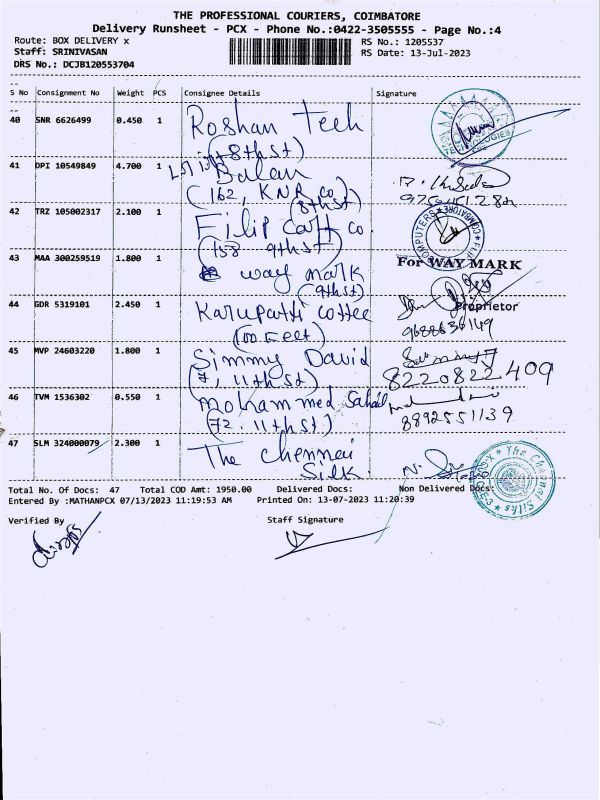 THE PROFESSIONAL COURIERS, COIMBATORE
Delivery Runsheet - PCX - Phone No.:0422-3505555 - Page No.:4
Route: BOX DELIVERY x
RS No.: 1205537
Staff: SRINIVASAN
RS Date: 13-Jul-2023
DRS No.: DCJB120553704
S No Consignment No Weight PCS Consignee Details Signature
40 SNR 6626499 0.450 1 Roshan Tech
(8thst)
TECHNOLOGIES
41 DPI 10549849 4.700 1 Balan
(162, KNR Co,
8thst)
42 TRZ 105002317 2.100 1 Filip Cart co
(158 9thst)
COMPUTERS COIMBATORE
43 MAA 300259519 1.800 1 way mark
(9thst)
For WAY MARK
Proprietor
44 GDR 5319101 2.450 1 Karupatti coffee
(100 Feet)
9688636149
45 MVP 24603220 1.800 1 Simmy David
(7, 11thst)
8220822409
46 TVM 1536302 0.550 1 Mohammed Sahal
(72. 11thst)
8892551139
47 SLM 324000079 2.300 1 The Chennai
Silk.
The Chennai Silks
Total No. Of Docs: 47 Total COD Amt: 1950.00 Delivered Docs: Non Delivered Docs:
Entered By :MATHANPCX 07/13/2023 11:19:53 AM Printed On: 13-07-2023 11:20:39
Verified By Staff Signature